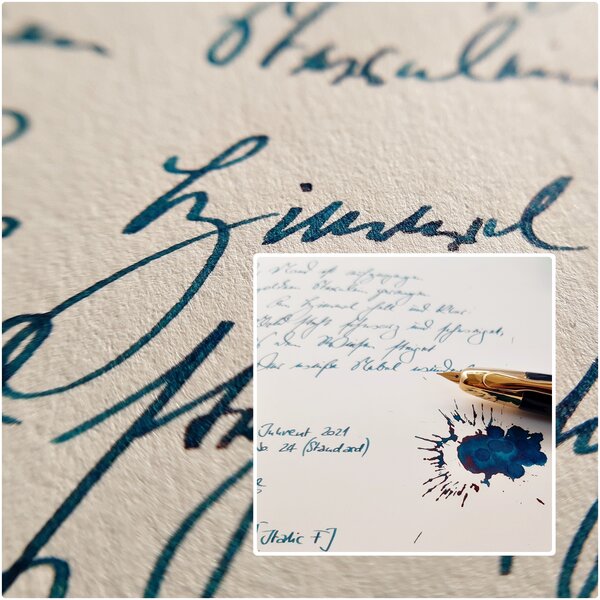 Sternlein
Himmel
Mond ist aufgegangen
Sternlein prangen
Am Himmel hell und klar:
Wald steht schwarz und schweiget,
den Wiesen steiget
Der weiße Nebel
Inkvent 2021
No. 24 (Standard)
[Italic F]